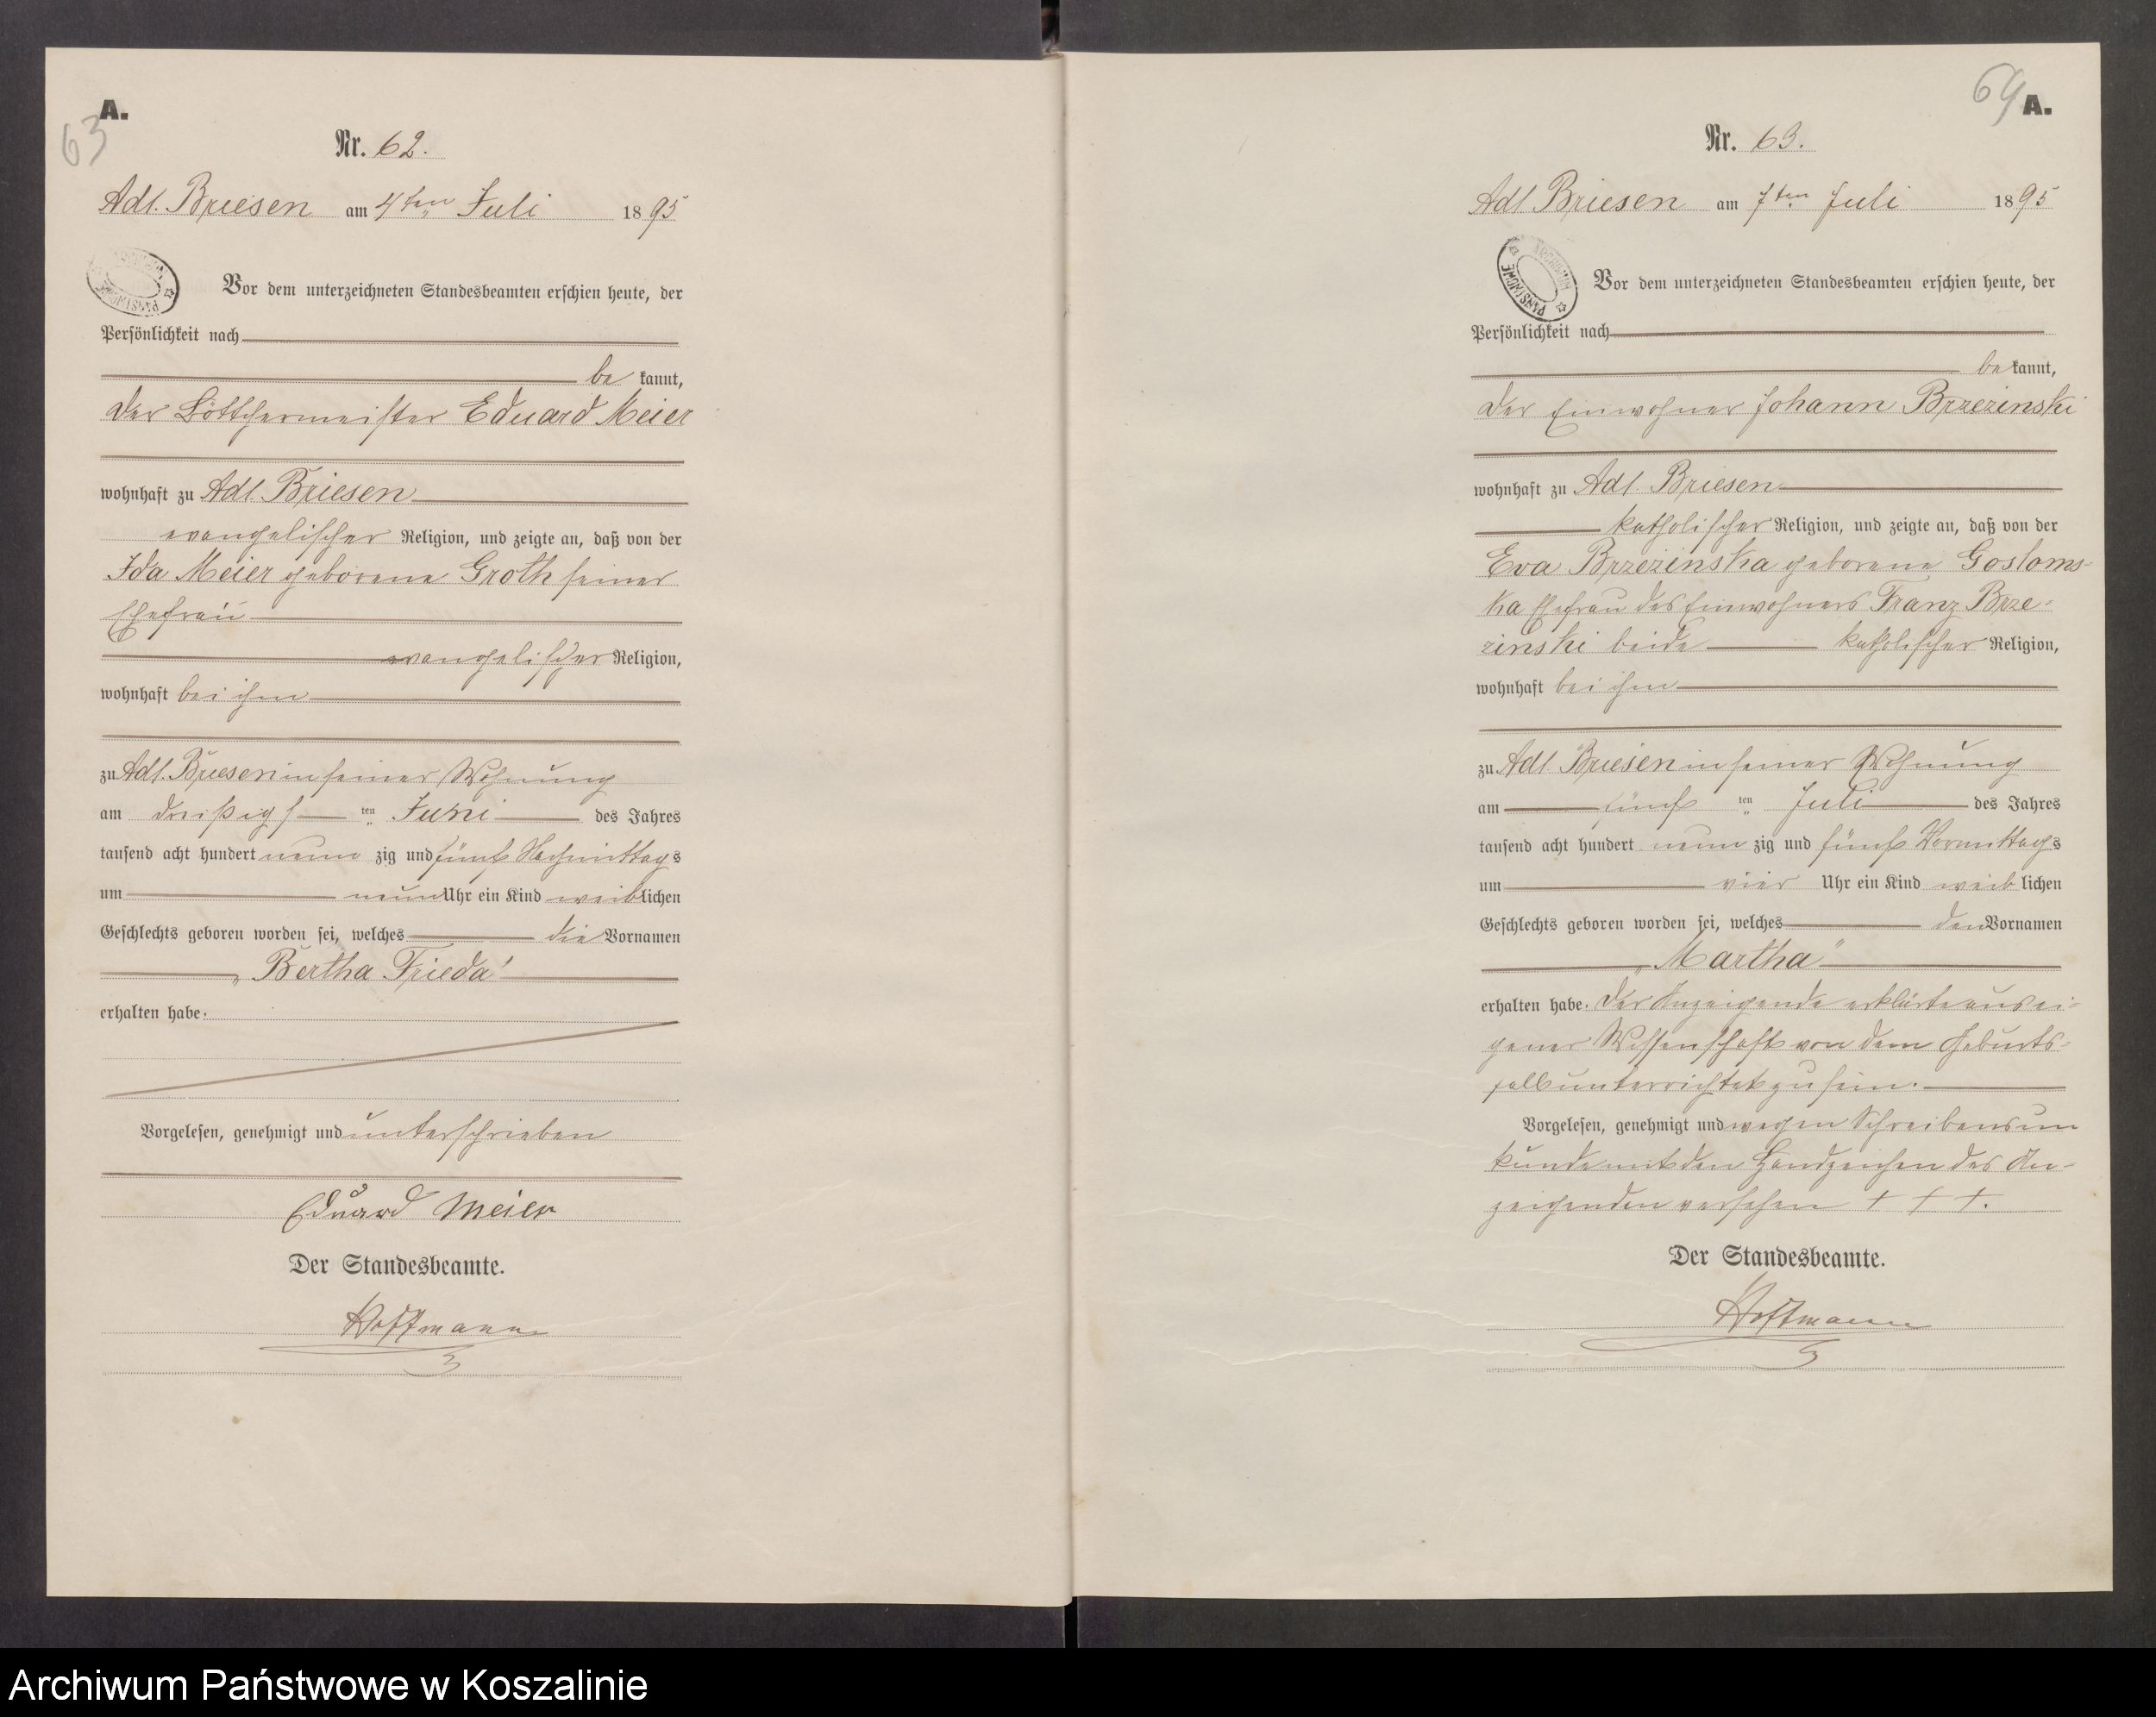 A.
63
Nr. 62.
Adl. Briesen am 4ten Juli 1895
ARCHIWUM PAŃSTWOWE
Vor dem unterzeichneten Standesbeamten erschien heute, der
Persönlichkeit nach
be kannt,
der Böttchermeister Eduard Meier
wohnhaft zu Adl. Briesen
evangelischer Religion, und zeigte an, daß von der
Ida Meier geborene Groth seiner
Ehefrau
evangelischer Religion,
wohnhaft bei ihm
zu Adl. Briesen in seiner Wohnung
am dreißigs ten Juni des Jahres
tausend acht hundert neun zig und fünf Nachmittags
um neun Uhr ein Kind weiblichen
Geschlechts geboren worden sei, welches die Vornamen
„Bertha Frieda"
erhalten habe.
Vorgelesen, genehmigt und unterschrieben
Eduard Meier
Der Standesbeamte.
Hoffmann
64 A.
Nr. 63.
Adl Briesen am 7ten Juli 1895
ARCHIWUM PAŃSTWOWE
Vor dem unterzeichneten Standesbeamten erschien heute, der
Persönlichkeit nach
be kannt,
der Einwohner Johann Brzezinski
wohnhaft zu Adl. Briesen
katholischer Religion, und zeigte an, daß von der
Eva Brzezinska geborene Gosloms-
ka Ehefrau des Einwohners Franz Brze-
zinski beide katholischer Religion,
wohnhaft bei ihm
zu Adl Briesen in seiner Wohnung
am fünf ten Juli des Jahres
tausend acht hundert neun zig und fünf Vormittags
um vier Uhr ein Kind weiblichen
Geschlechts geboren worden sei, welches den Vornamen
„Martha"
erhalten habe. Der Anzeigende erklärte aus ei-
gener Wissenschaft von dem Geburts-
fall unterrichtet zu sein.
Vorgelesen, genehmigt und wegen Schreibensun
kunde mit den Handzeichen des An-
zeigenden versehen + + +.
Der Standesbeamte.
Hoffmann
Archiwum Państwowe w Koszalinie